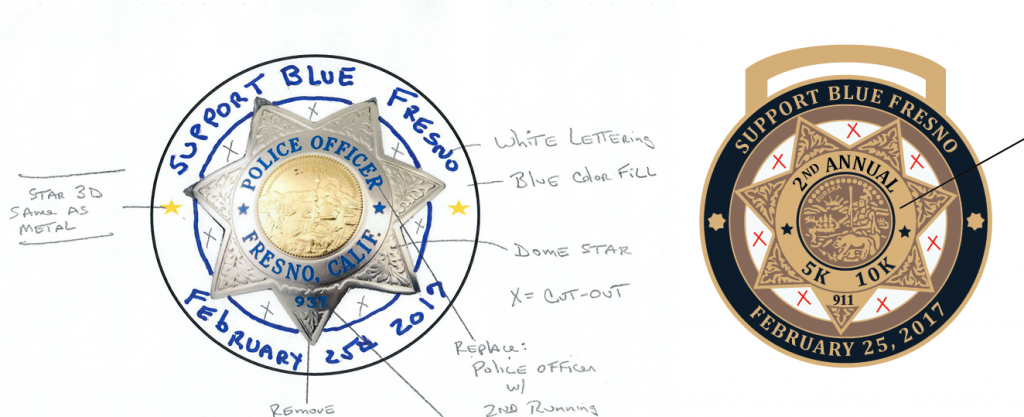 SUPPORT BLUE FRESNO
POLICE OFFICER
EUREKA
FRESNO, CALIF.
FEBRUARY 25th 2017
STAR 3D
SAME AS
METAL
WHITE LETTERING
BLUE COLOR FILL
DOME STAR
X = CUT-OUT
REPLACE:
POLICE OFFICER
W/
2ND RUNNING
REMOVE
X
X
X
X
X
X
X
SUPPORT BLUE FRESNO
2ND ANNUAL
EUREKA
5K 10K
911
FEBRUARY 25, 2017
X
X
X
X
X
X
X